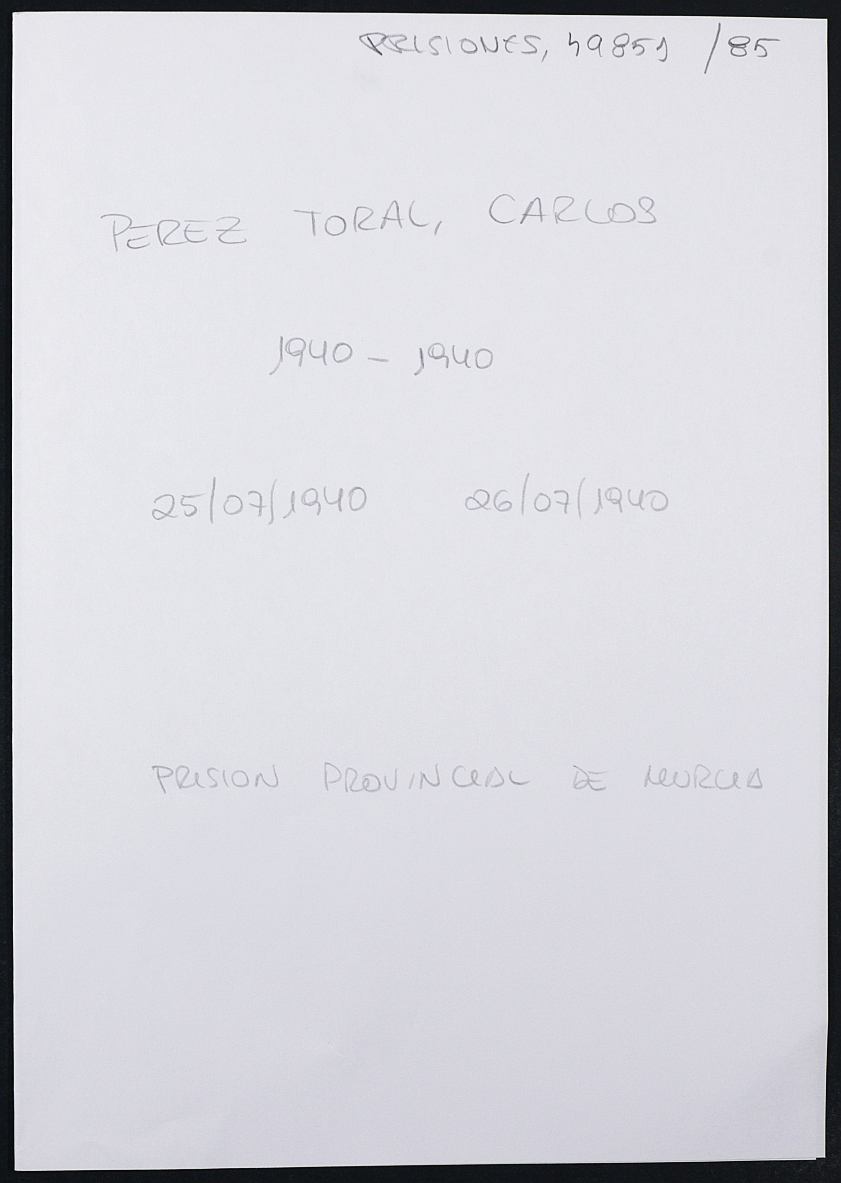 PRISIONES, 49851 /85
PEREZ TORAL, CARLOS
1940 - 1940
25/07/1940 26/07/1940
PRISION PROVINCIAL DE MURCIA